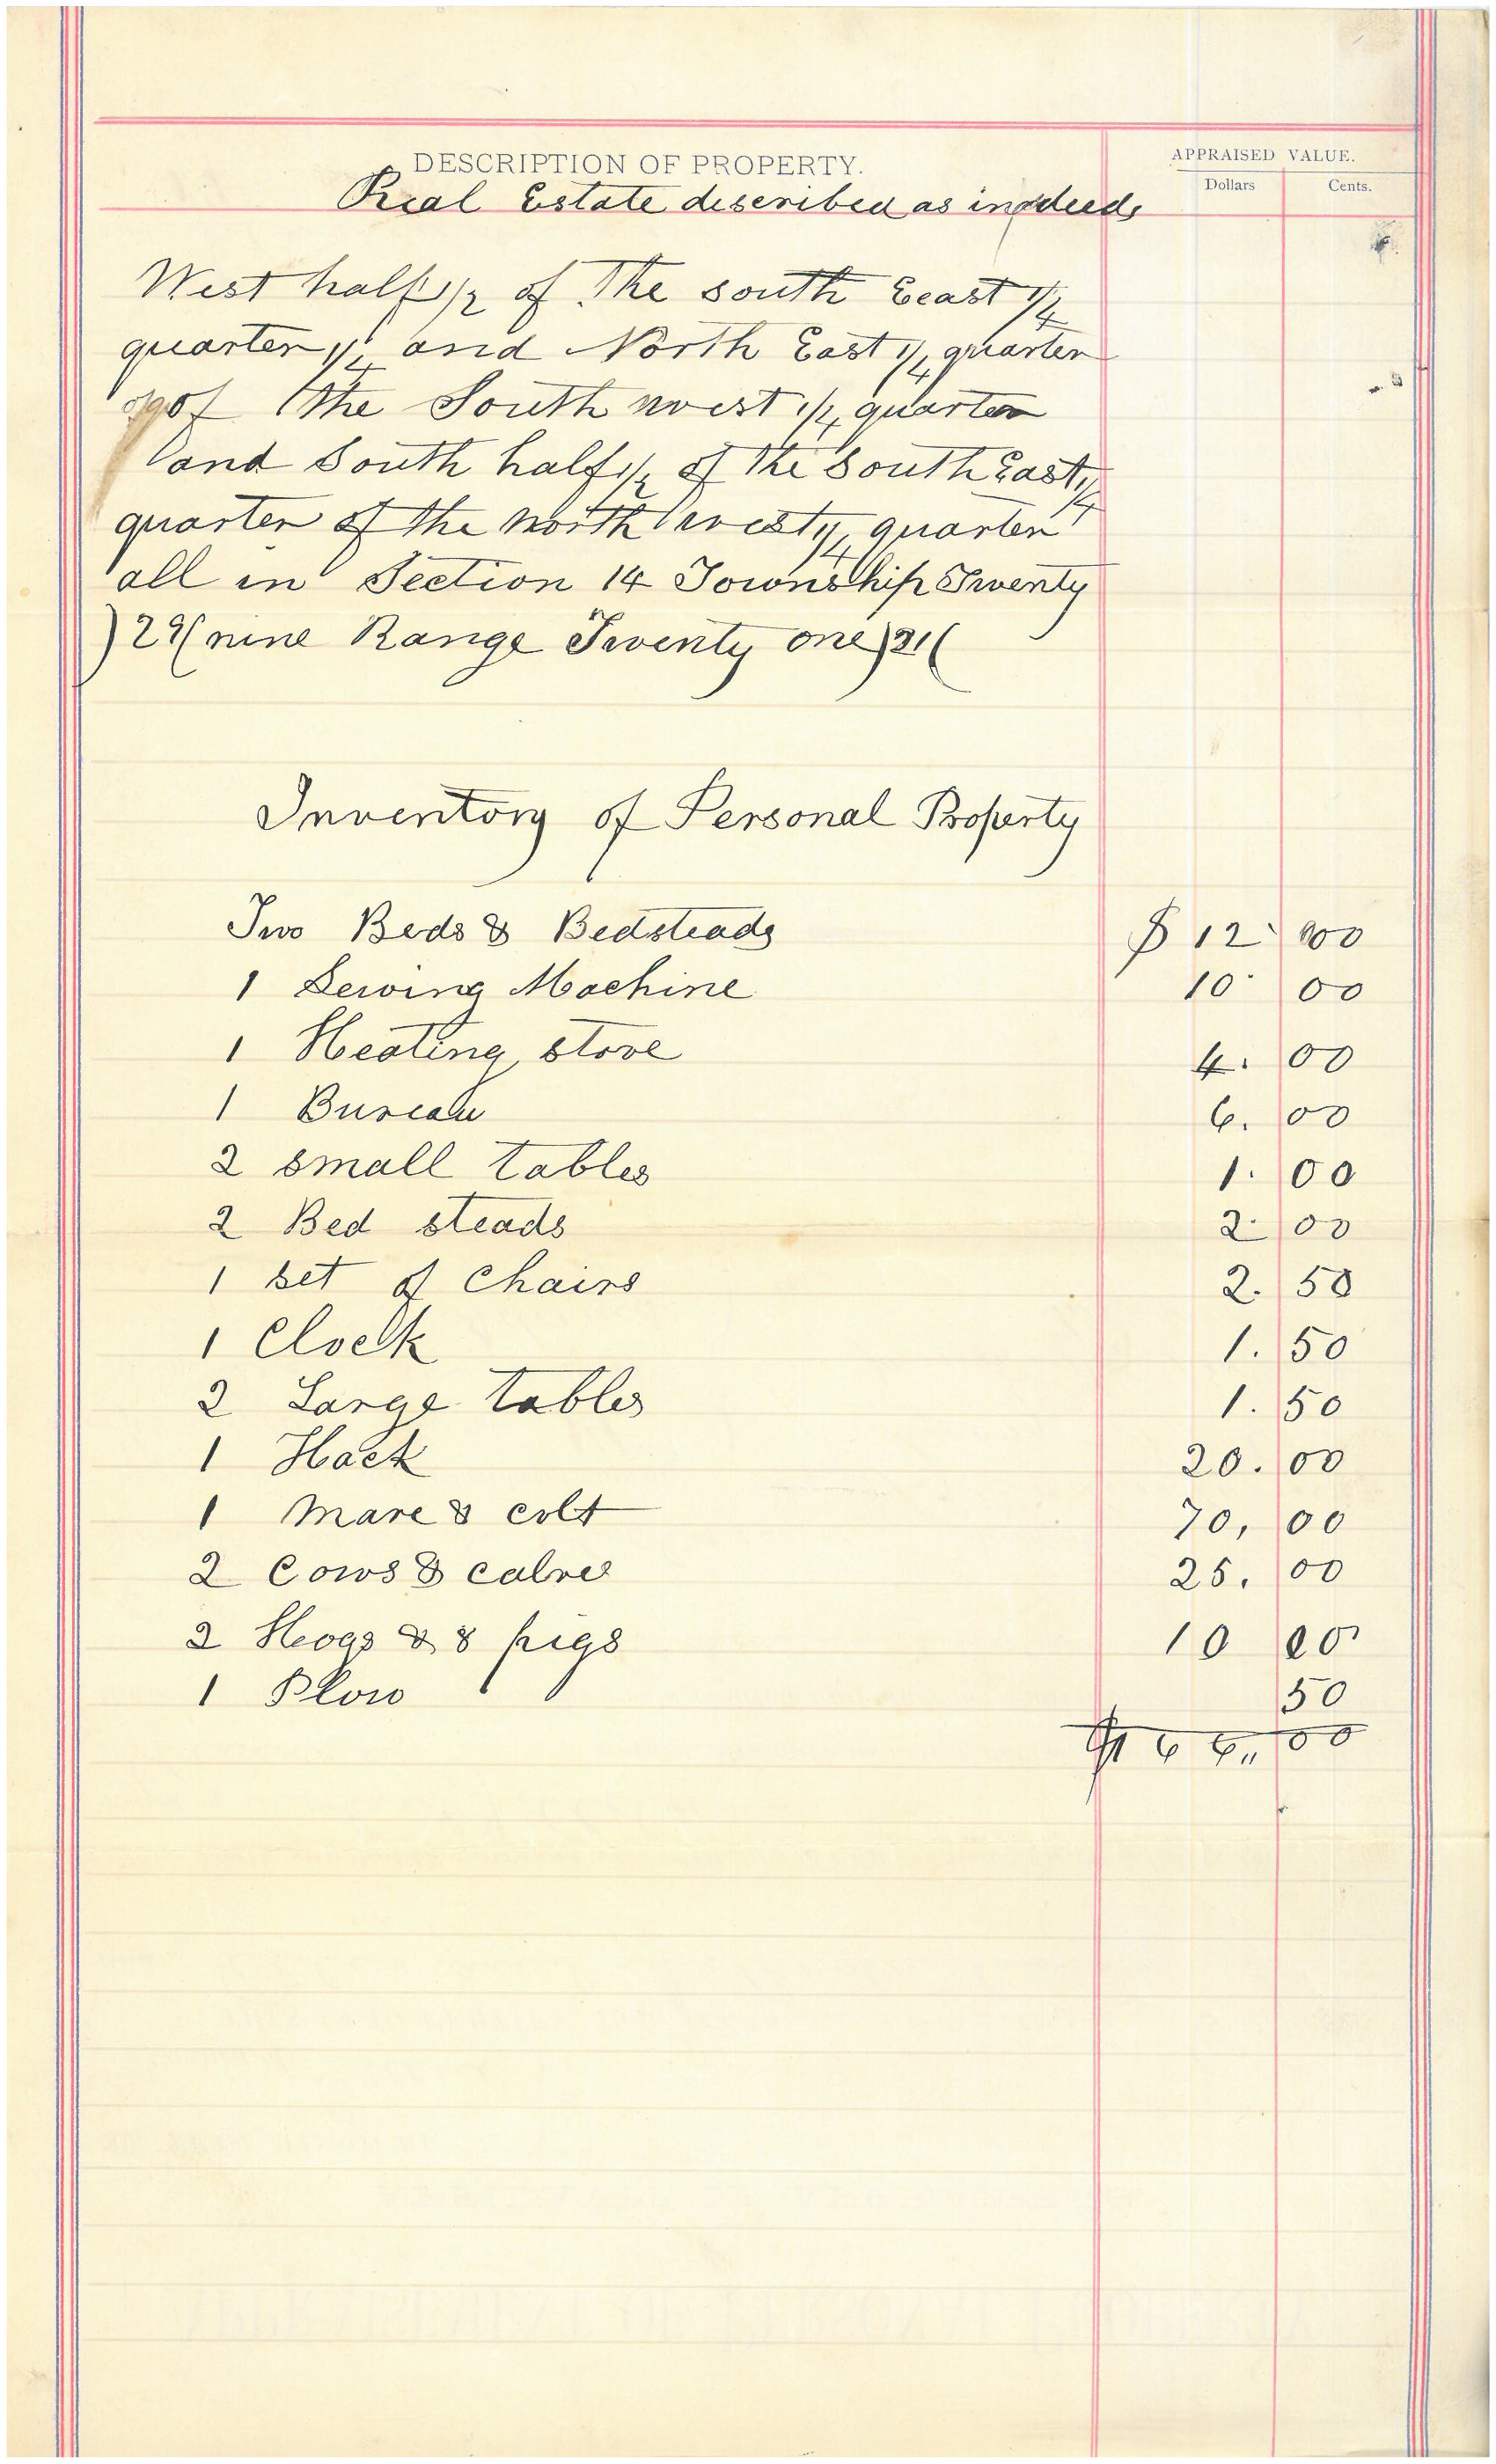 DESCRIPTION OF PROPERTY.
APPRAISED VALUE.
Dollars Cents.
Real Estate described as in deeds
West half 1/2 of The south Eeast 1/4
quarter 1/4 and North East 1/4 quarter
of the South west 1/4 quarter
and South half 1/2 of the South East 1/4
quarter of the north west 1/4 quarter
all in Section 14 Township Twenty
)29( nine Range Twenty one )21(
Inventory of Personal Property
Two Beds & Bedsteads $ 12 00
1 Sewing Machine 10 00
1 Heating stove 4. 00
1 Bureau 6. 00
2 small tables 1. 00
2 Bed steads 2. 00
1 set of Chairs 2. 50
1 Clock 1. 50
2 Large tables 1. 50
1 Hack 20. 00
1 Mare & colt 70, 00
2 Cows & calves 25. 00
2 Hogs & 8 pigs 10 00
1 Plow 50
$166,, 00